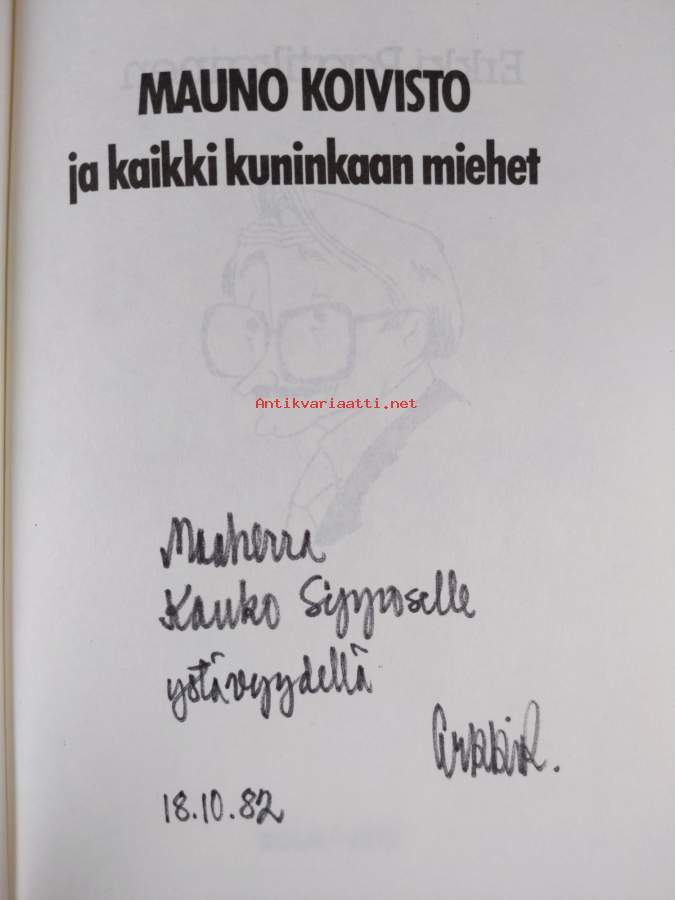 MAUNO KOIVISTO
ja kaikki kuninkaan miehet
Antikvariaatti.net
Maaherra
Kauko Sipposelle
ystävyydellä
18.10.82